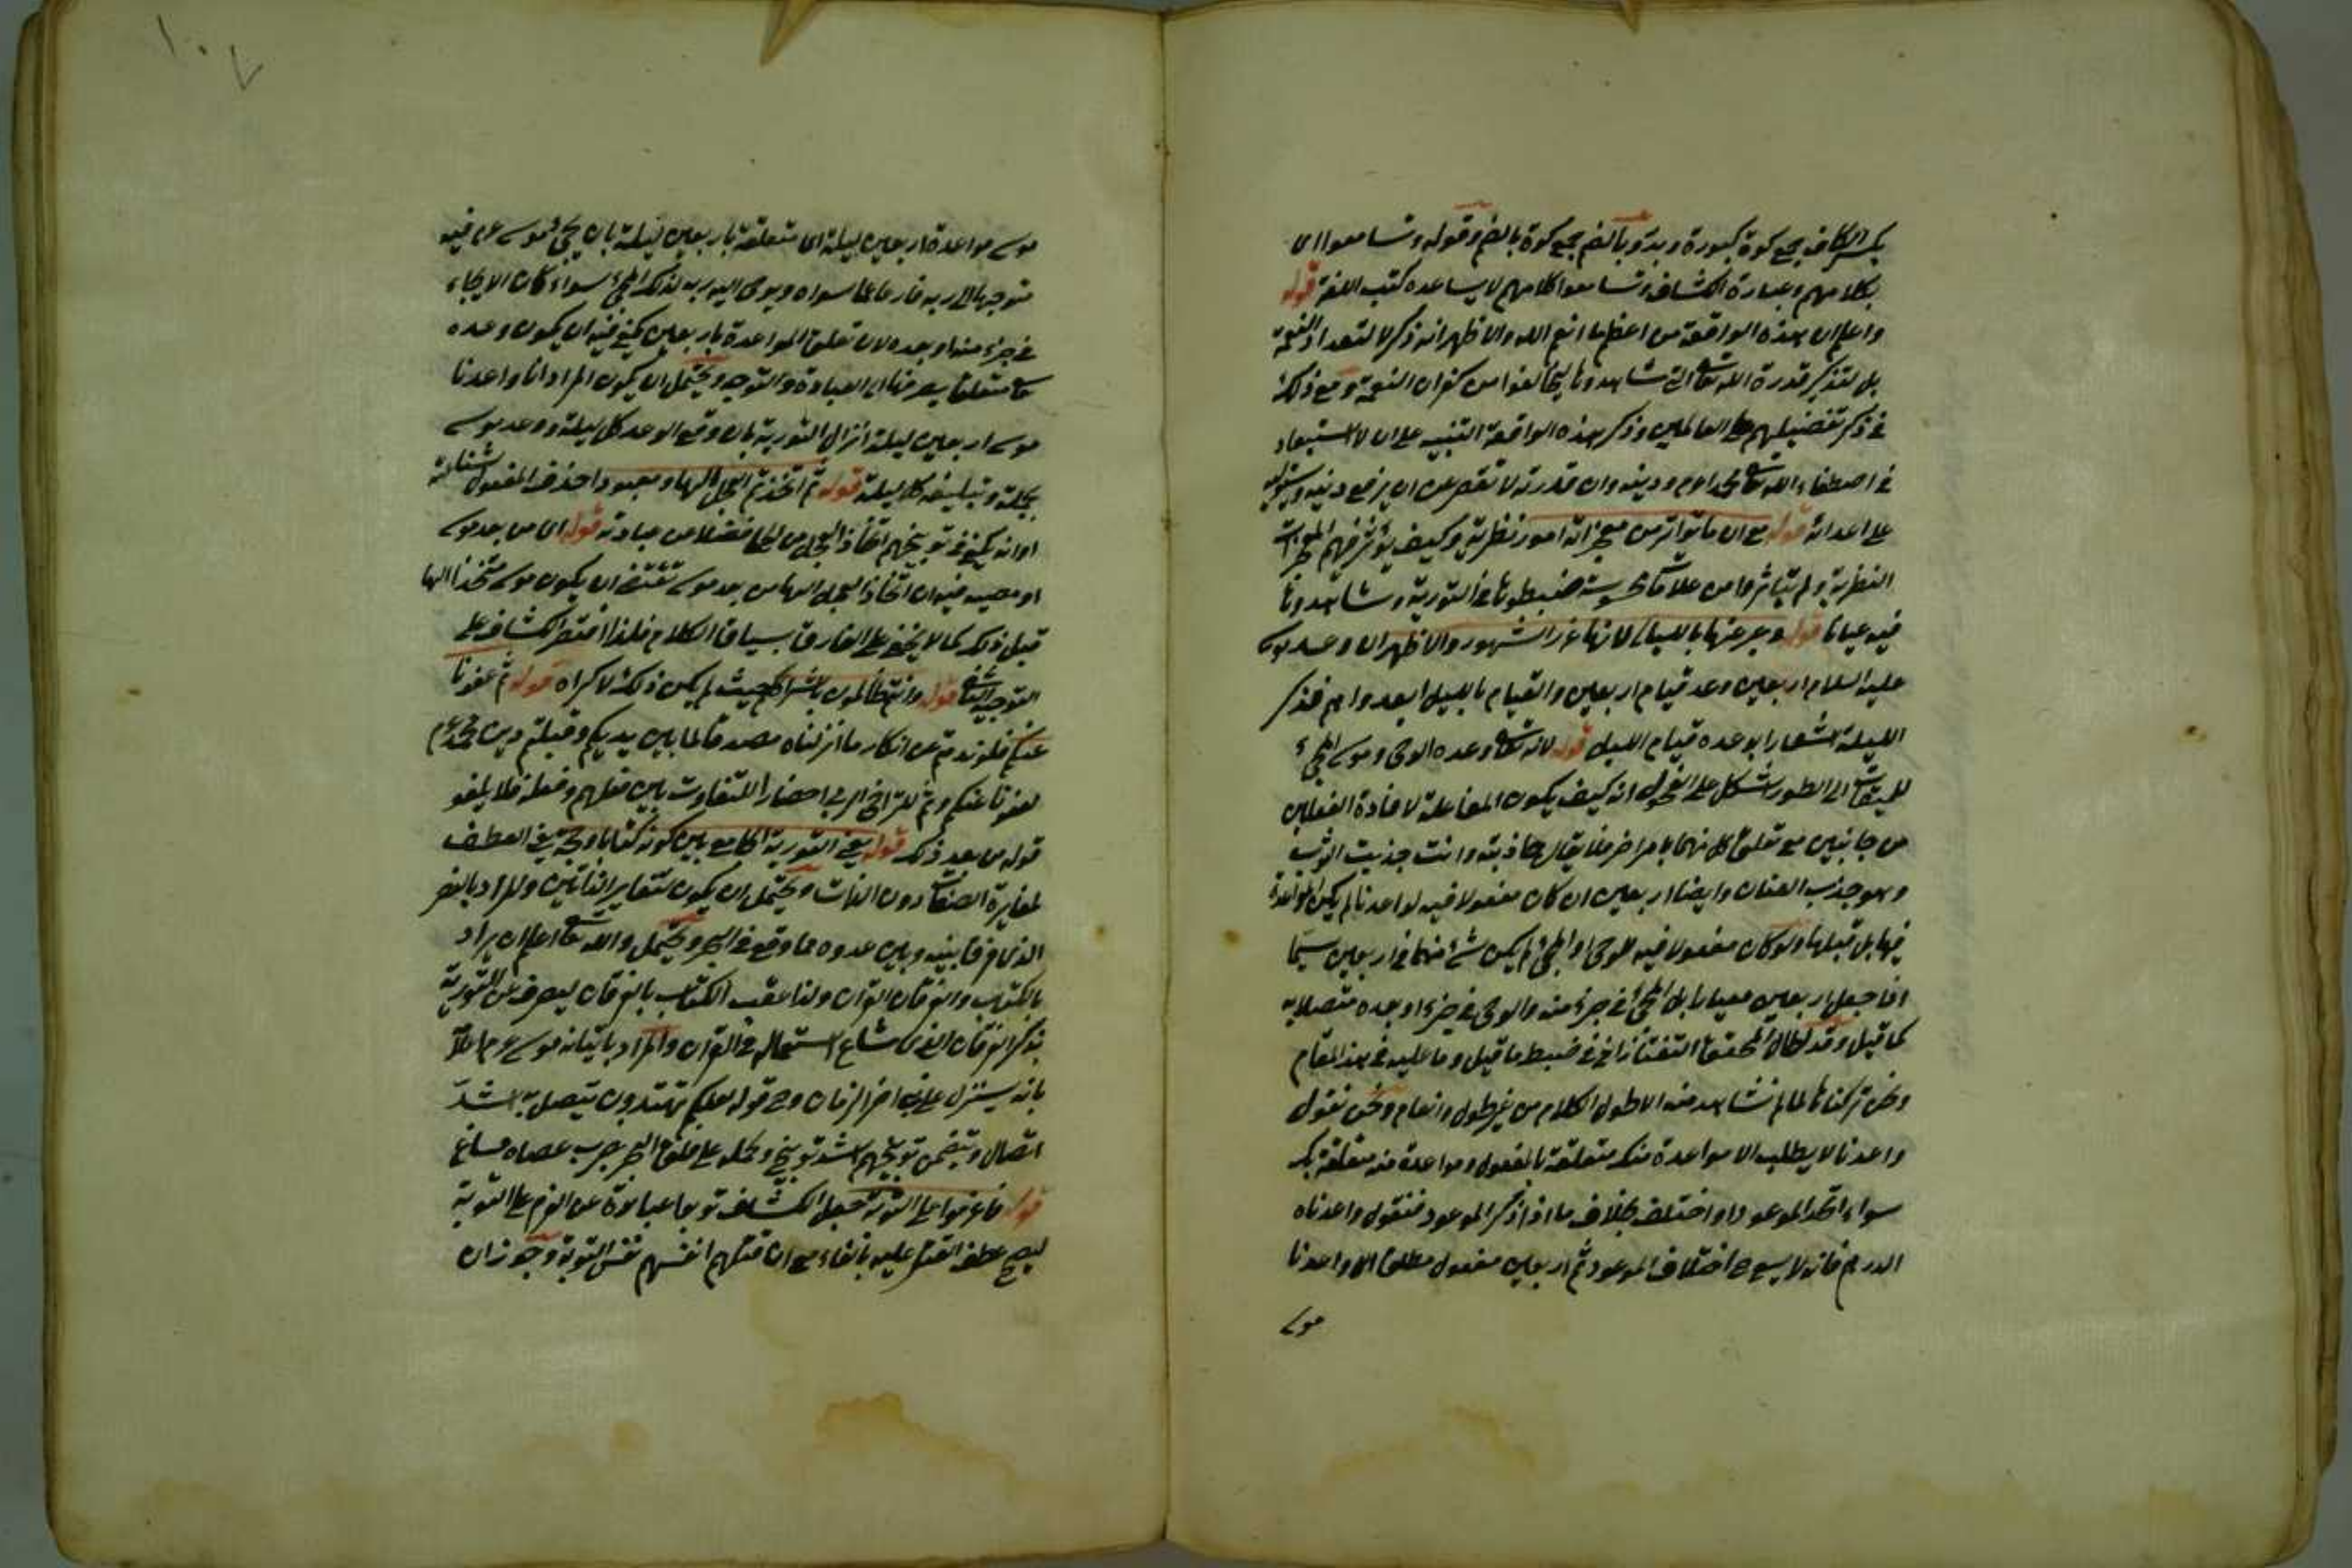 بكسر الكاف جمع كوة كبدرة وبدر وبالضم جمع كوة بالضم وقوله وتسامعوا اي
بكلامهم وعبارة الكشاف وتسامعوا كلامهم لا يساعده كتب اللغة قوله
واعلم ان هذه الواقعة من اعظم ما انعم الله والاظهر انه ذكر لا لتعداد النعمة
بل لتذكر قدرة الله تعالى التي شاهدوها ليخافوا من كفران النعمة ومع ذلك
في ذكر تفضيلهم على العالمين وذكر هذه الواقعة التنبيه على ان لا استبعاد
في اصطفاء الله تعالى محمدا ودينه وان قدرته لا تقصر عن ان يرفع دينه
على اعدائه قوله مع ان ما تواتر من معجزاته امور نظرية وكيف يؤثر فيهم
النظرية ولم يتأثروا من علامات ضبطوها في التورية وشاهدوها
فيه عيانا قوله وعبر عنها بالليالي لانها غرر الشهور والاظهر ان وعد موسى
عليه السلام اربعين وعد قيام اربعين والقيام بالليل ابعد واهم فذكر
الليلة اشعارا بوعده قيام الليل قوله لانه تعالى وعده الوحي وموسى المجيء
للميقات الى الطور اشكل على الفحول انه كيف يكون المفاعلة لافادة الفعلين
من جانبين مع تعلق كل منهما بامر اخر فلا يقال جاذبته وانت جذبت الثوب
وهو جذب العنان وايضا اربعين ان كان مفعولا فيه لواعدنا لم يكن المواعدة
فيها بل قبلها ولو كان مفعولا فيه للوحي او المجيء لم يكن شئ منهما في اربعين سيما
اذا جعل اربعين معيارا بل المجيء في جزء منه والوحي في جزء او بعده متصلا به
كما قيل وقد اطال المحقق التفتازاني في ضبط ما قيل وما عليه في هذا المقام
ونحن تركناها لما لم نشاهد منه الا طول الكلام من غير طول وانعام ونحن نقول
واعدنا لا يطلب الا مواعدة منك متعلقة بالمفعول ومواعدة منه متعلقة بك
سواء اتحد الموعود او اختلف بخلاف ما اذا ذكر الموعود فنقول واعدناه
الدرهم فانه لا يسع اختلاف الموعود ثم اربعين مفعول مطلق اي واعدنا
موسى
موسى مواعدة اربعين ليلة اي متعلقة باربعين ليلة بان يجيء موسى فيه
متوجها الى ربه فارغا عما سواه ويوحي اليه ربه لذلك المجيء سواء كان الايحاء
في جزء منه او بعده لان تعلق المواعدة باربعين يكفي فيه ان يكون وعده
تعالى متعلقا بصرفها الى العبادة والتوجه ويحتمل ان يكون المراد انا واعدنا
موسى اربعين ليلة انزال التورية بان وقع الوعد كل ليلة ووعد موسى
وتبليغه كل ليلة قوله ثم اتخذتم العجل الها ومعبودا حذف المفعول لشناعته
او انه يكفي في توبيخهم اتخاذ العجل من الحلي فضلا من عبادته قوله اي من بعد موسى
او مضيه فيه ان اتخاذ العجل الها من بعد موسى تقتضي ان يكون موسى متخذا الها
قبل ذلك كما لا يخفى على العارف بسياق الكلام فلذا اقتصر الكشاف على
التوجيه الثاني قوله وانتم ظالمون باشراككم حيث لم يكن ذلك لاكراه قوله ثم عفونا
عنكم فلم ندمتم عن انكار ما انزلناه مصدقا لما بين يديكم وقبلتم دين محمد
لعفونا عنكم وثم للتراخي احضارا للتفاوت بين فعلهم وفعله فلا يلغو
قوله من بعد ذلك قوله يعني التورية الجامع بين كونه كتابا وحجة يعني العطف
لمغايرة الصفات دون الذات ويحتمل ان يكون لتغاير الذاتين والمراد بالنصر
الذي فرق بينه وبين عدوه مما وقع في البحر ويحتمل والله تعالى اعلم ان يراد
بالكتاب والفرقان القرآن ولذا عقب الكتاب بالفرقان ليصرف عن التورية
بذكر الفرقان الذي شاع استعماله في القرآن والمراد باتيانه موسى
بانه سينزل على نبي اخر الزمان وح قوله لعلكم تهتدون يتصل به اشد
اتصال ويتضمن توبيخهم اشد توبيخ وحمله على فلق البحر بضرب عصاه مساغ
قوله فاعزموا على التوبة جعل الكشاف توبوا عبارة عن العزم على التوبة
ليصح عطف القتل عليه بالفاء مع ان قتلهم انفسهم نفس التوبة وجوز ان
١٠٧